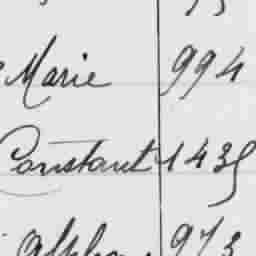 Marie 994
Constant 1435
973